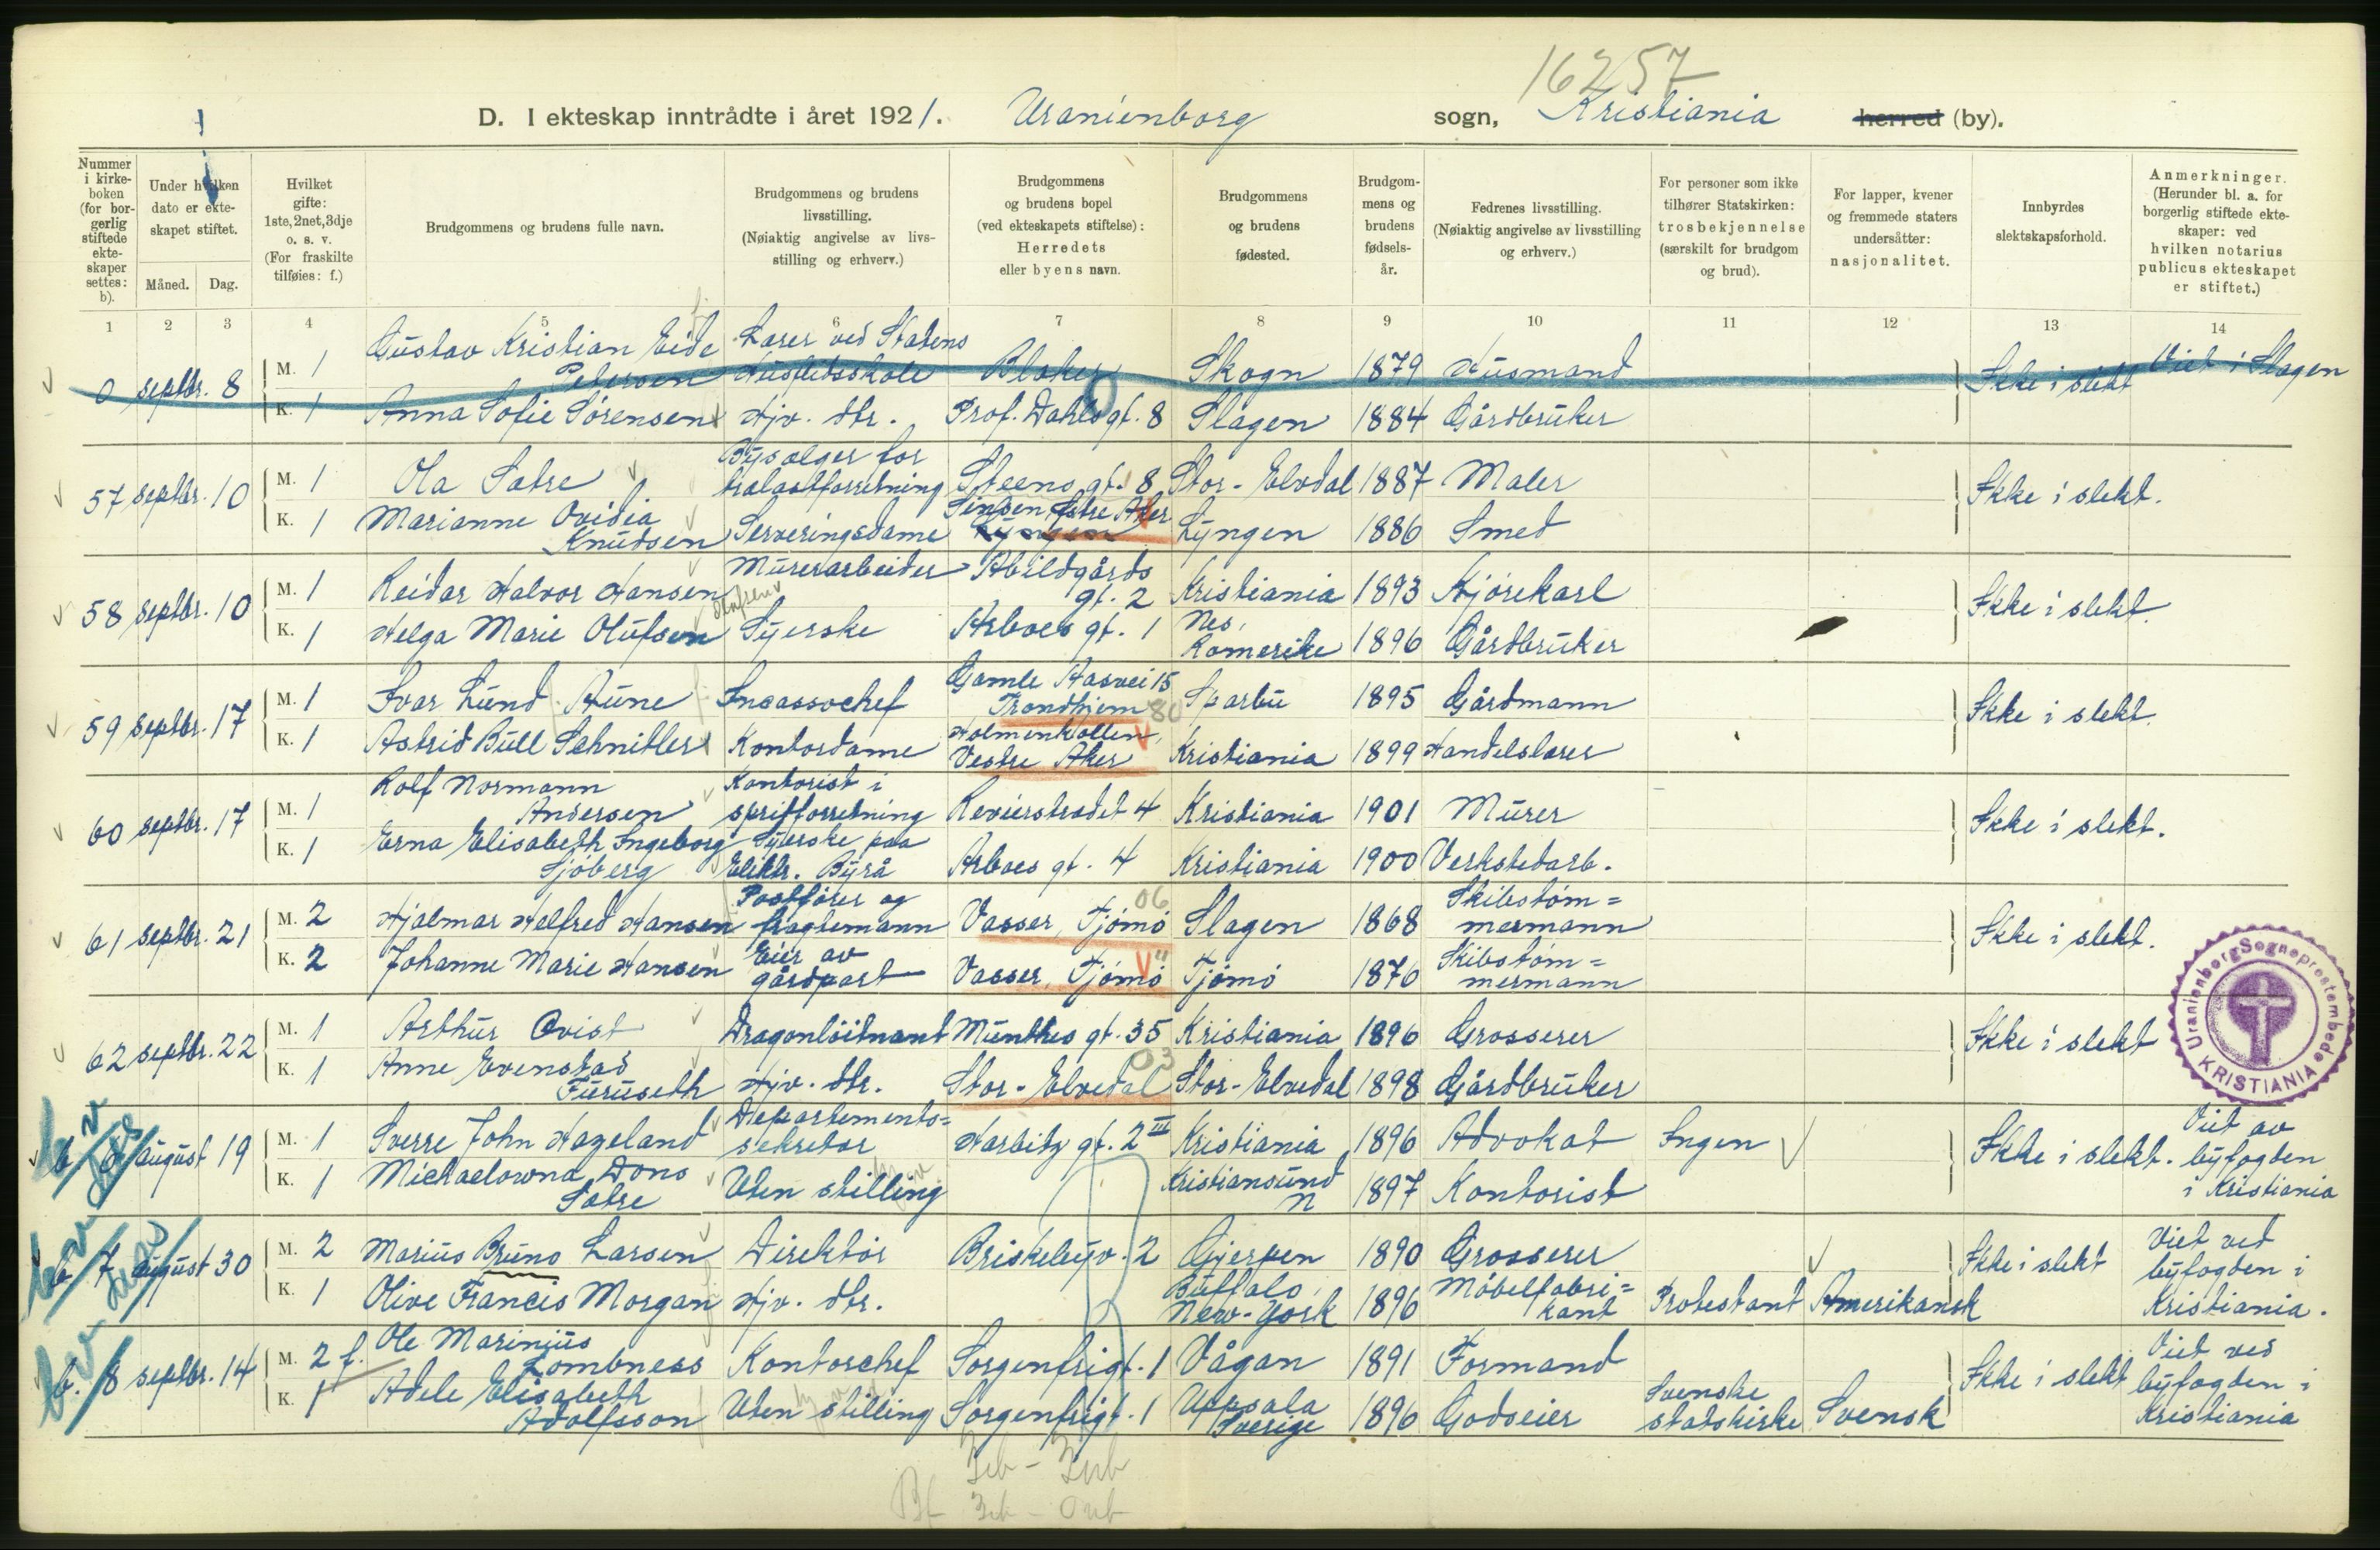 16257
D. I ekteskap inntrådte i året 1921. Uranienborg sogn, Kristiania herred (by).
Nummer i kirkeboken (for borgerlig stiftede ekteskaper settes: b).
Under hvilken dato er ekteskapet stiftet.
Måned. Dag.
Hvilket gifte: 1ste, 2net, 3dje o. s. v. (For fraskilte tilføies: f.)
Brudgommens og brudens fulle navn.
Brudgommens og brudens livsstilling. (Nøiaktig angivelse av livsstilling og erhverv.)
Brudgommens og brudens bopel (ved ekteskapets stiftelse): Herredets eller byens navn.
Brudgommens og brudens fødested.
Brudgommens og brudens fødselsår.
Fedrenes livsstilling. (Nøiaktig angivelse av livsstilling og erhverv.)
For personer som ikke tilhører Statskirken: trosbekjennelse (særskilt for brudgom og brud).
For lapper, kvener og fremmede staters undersåtter: nasjonalitet.
Innbyrdes slektskapsforhold.
Anmerkninger. (Herunder bl. a. for borgerlig stiftede ekteskaper: ved hvilken notarius publicus ekteskapet er stiftet.)
1 2 3 4 5 6 7 8 9 10 11 12 13 14
0 septbr. 8 M. 1 Gustav Kristian Eide Petersen Lærer ved Statens Husflidsskole Blaker Skogn 1879 Husmand Ikke i slekt Viet i Slagen
K. 1 Anna Sofie Sørensen Hjv. dtr. Prof. Dahls gt. 8 Slagen 1884 Gårdbruker
57 septbr. 10 M. 1 Ola Sætre Bysælger for trælastforretning Steens gt. 8 Stor-Elvdal 1887 Maler Ikke i slekt.
K. 1 Marianne Ovidia Knudsen Serveringsdame Sinsen Østre Aker Lyngen Lyngen 1886 Smed
58 septbr. 10 M. 1 Reidar Halvor Hansen Murerarbeider Abildgårds gt. 2 Kristiania 1893 Kjørekarl Ikke i slekt.
K. 1 Helga Marie Olufsen Olafsen Syerske Arboes gt. 1 Nes, Romerike 1896 Gårdbruker
59 septbr. 17 M. 1 Ivar Lund Aune Incassochef Gamle Aasvei 15 Trondhjem 80 Sparbu 1895 Gårdmann Ikke i slekt.
K. 1 Astrid Bull Schnitler Kontordame Holmenkollen, Vestre Aker Kristiania 1899 Handelslærer
60 septbr. 17 M. 1 Rolf Normann Andersen Kontorist i spritforretning Revierstrædet 4 Kristiania 1901 Murer Ikke i slekt.
K. 1 Erna Elisabeth Ingeborg Sjøberg Syerske paa Elektr. Byrå Arboes gt. 4 Kristiania 1900 Verkstedarb.
61 septbr. 21 M. 2 Hjalmar Halfred Hansen Postfører og fragtemann Vasser, Tjømø 06 Slagen 1868 Skibstømmermann Ikke i slekt.
K. 2 Johanne Marie Hansen Eier av gårdpart Vasser, Tjømø " Tjømø 1876 Skibstømmermann
62 septbr. 22 M. 1 Arthur Qvist Dragonløitnant Munthes gt. 35 Kristiania 1896 Grosserer Ikke i slekt
K. 1 Anne Evenstad Furuseth Hjv. dtr. Stor-Elvedal 03 Stor-Elvedal 1898 Gårdbruker
Uranienborg Sogneprestembede KRISTIANIA
b. 6 august 19 M. 1 Sverre John Hageland Departementssekretær Harbitz gt. 2 III Kristiania 1896 Advokat Ingen Ikke i slekt. Viet av byfogden i Kristiania
K. 1 Michaelowna Dons Sætre Uten stilling Kristiansund N 1897 Kontorist
b. 7 august 30 M. 2 Marius Bruno Larsen Direktør Briskebyv. 2 Gjerpen 1890 Grosserer Ikke i slekt Viet ved byfogden i Kristiania.
K. 1 Olive Francis Morgan Hjv. dtr. Buffalo, New-York 1896 Møbelfabrikant Protestant Amerikansk
b. 8 septbr. 14 M. 2 f. Ole Marinius Lombness Kontorchef Sorgenfrigt. 1 Vågan 1891 Formand Ikke i slekt Viet ved byfogden i Kristiania
K. 1 Adele Elisabeth Adolfsson Uten stilling Sorgenfrigt. 1 Uppsala Sverige 1896 Godseier Svenske statskirke Svensk